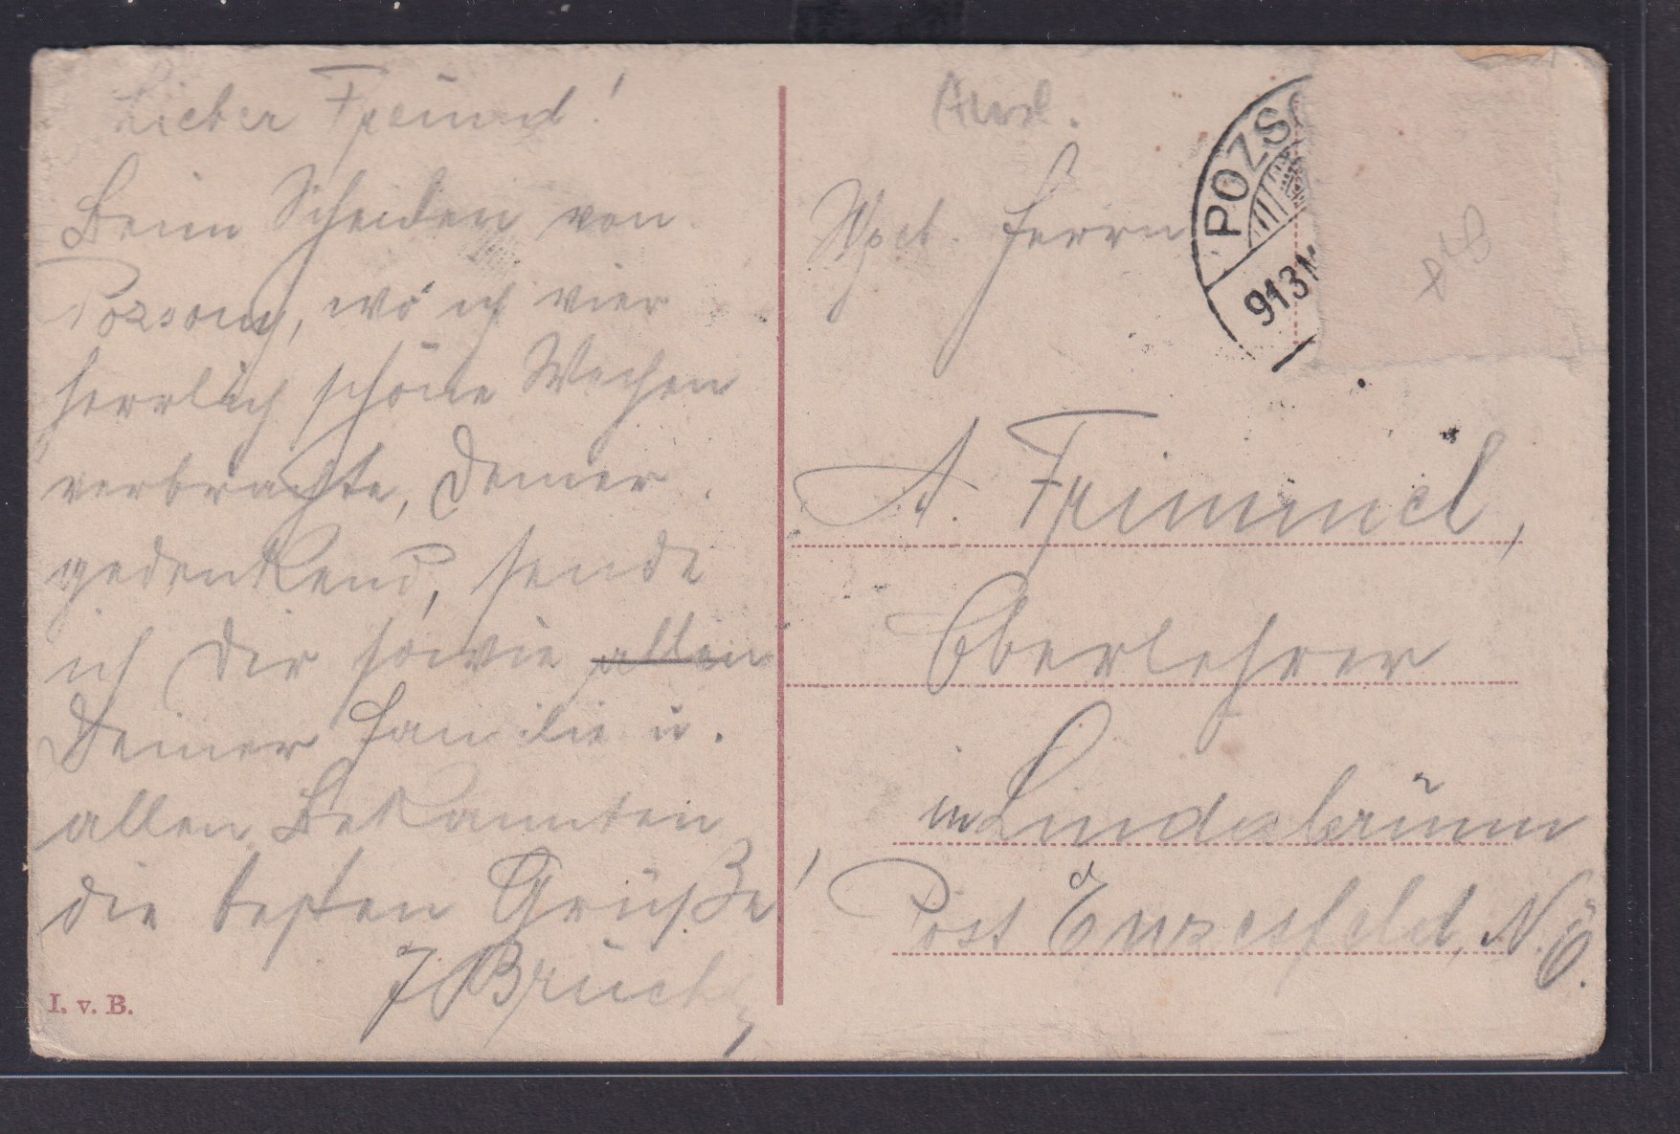 Lieber Freund!
Beim Scheiden von
Pozsony, wo ich vier
herrlich schöne Wochen
verbrachte, Deiner
gedenkend, sende
ich Dir sowie allen
Deiner Familie u.
allen Bekannten
die besten Grüße!
J Brück
I. v. B.
POZSO
913
Herrn
A. Frimmel,
Oberlehrer
in Lindabrunn
Post Enzesfeld, N.Ö.